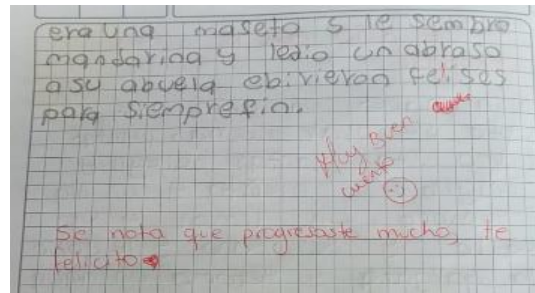 era una maseta s le sembro
mandarina y ledio un abraso
asu abuela ebivieron felises
para siempre fin.
Muy Buen
cuento
Se nota que progresaste mucho, te
felicito